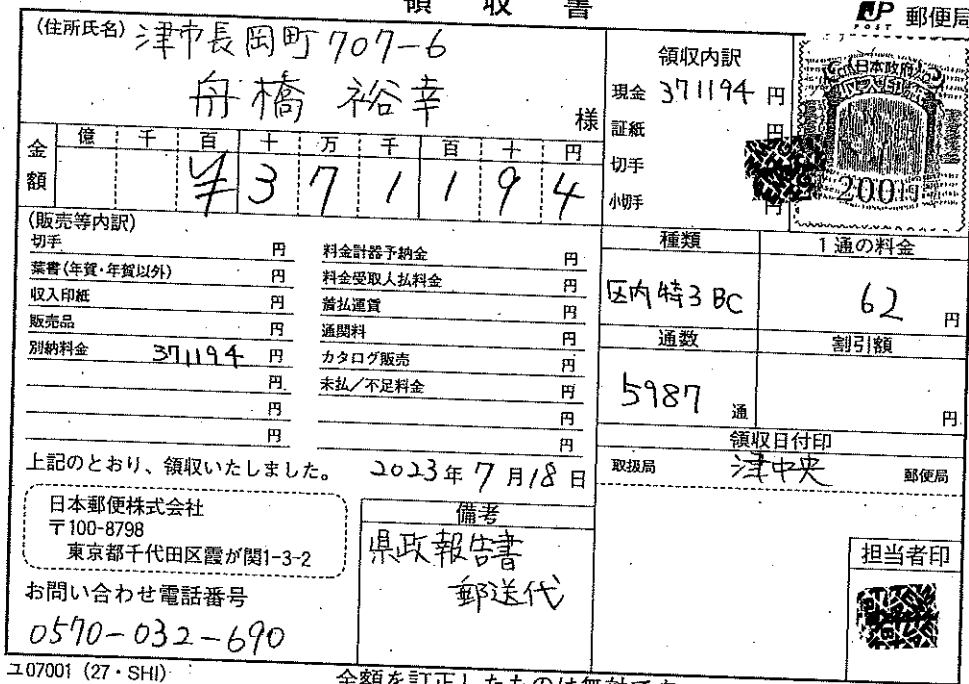 領収書
JP POST 郵便局
(住所氏名) 津市長岡町707-6
舟橋 裕幸 様
金額 億 千 百 十 万 千 百 十 円
¥371194
領収内訳
現金 371194 円
証紙 円
切手 円
小切手 円
日本政府
200円
(販売等内訳)
切手 円
葉書(年賀・年賀以外) 円
収入印紙 円
販売品 円
別納料金 371194 円
円
円
円
料金計器予納金 円
料金受取人払料金 円
着払運賃 円
通関料 円
カタログ販売 円
未払/不足料金 円
円
円
種類 1通の料金
区内特3BC 62 円
通数 割引額
5987 通 円
領収日付印
取扱局 津中央 郵便局
上記のとおり、領収いたしました。 2023年7月18日
日本郵便株式会社
〒100-8798
東京都千代田区霞が関1-3-2
お問い合わせ電話番号
0570-032-690
備考
県政報告書
郵送代
担当者印
ユ07001 (27・SHI)
金額を訂正したものは無効です